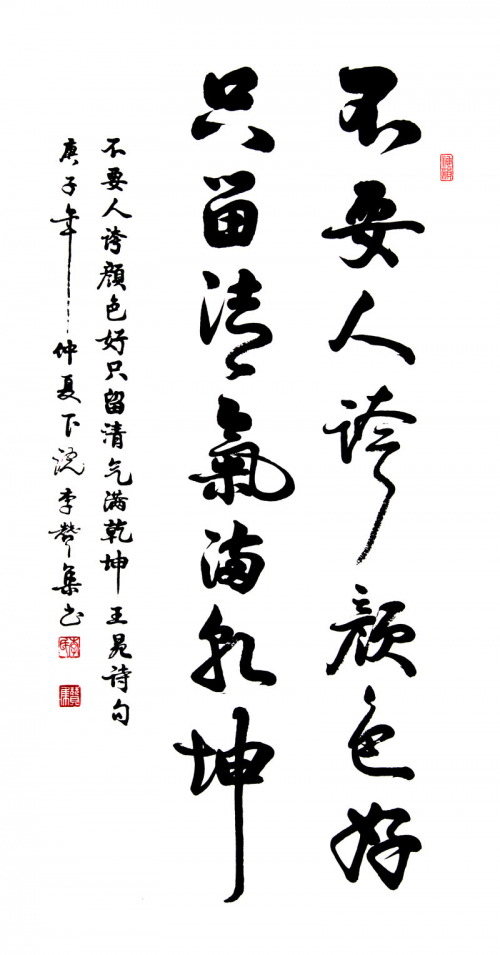 不要人誇顏色好
只留清氣滿乾坤
不要人誇顏色好只留清气满乾坤 王冕诗句
庚子年仲夏下浣李贊集书